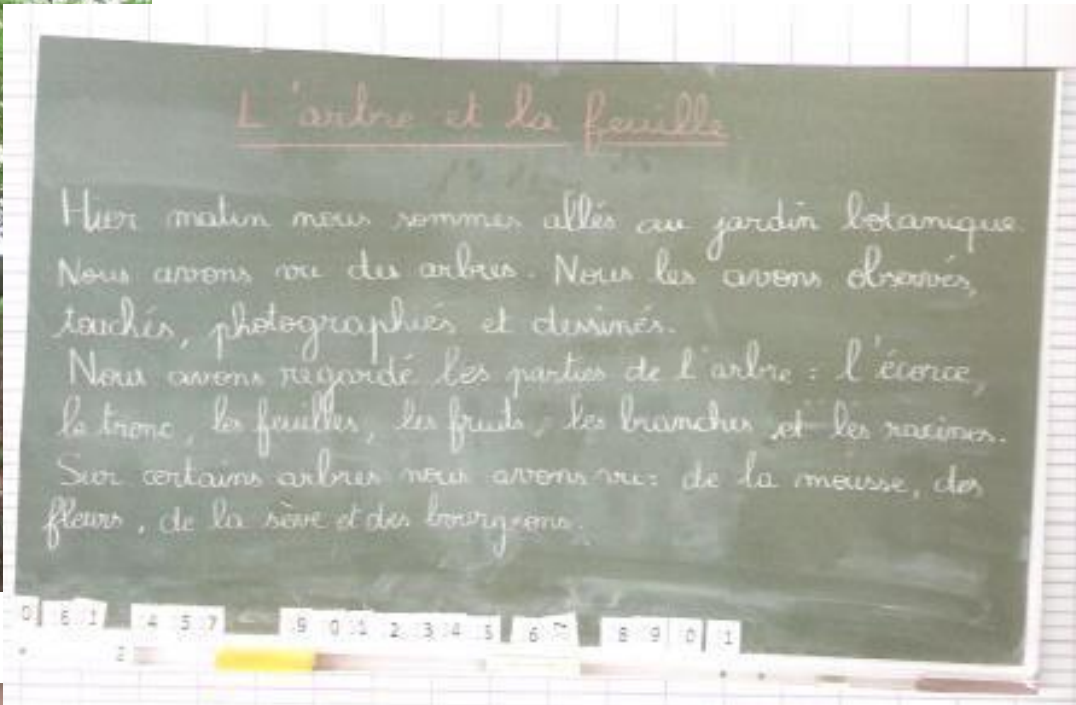 L'arbre et la feuille
Hier matin nous sommes allés au jardin botanique.
Nous avons vu des arbres. Nous les avons observés,
touchés, photographiés et dessinés.
Nous avons regardé les parties de l'arbre : l'écorce,
le tronc, les feuilles, les fruits, les branches et les racines.
Sur certains arbres nous avons vu : de la mousse, des
fleurs, de la sève et des bourgeons.